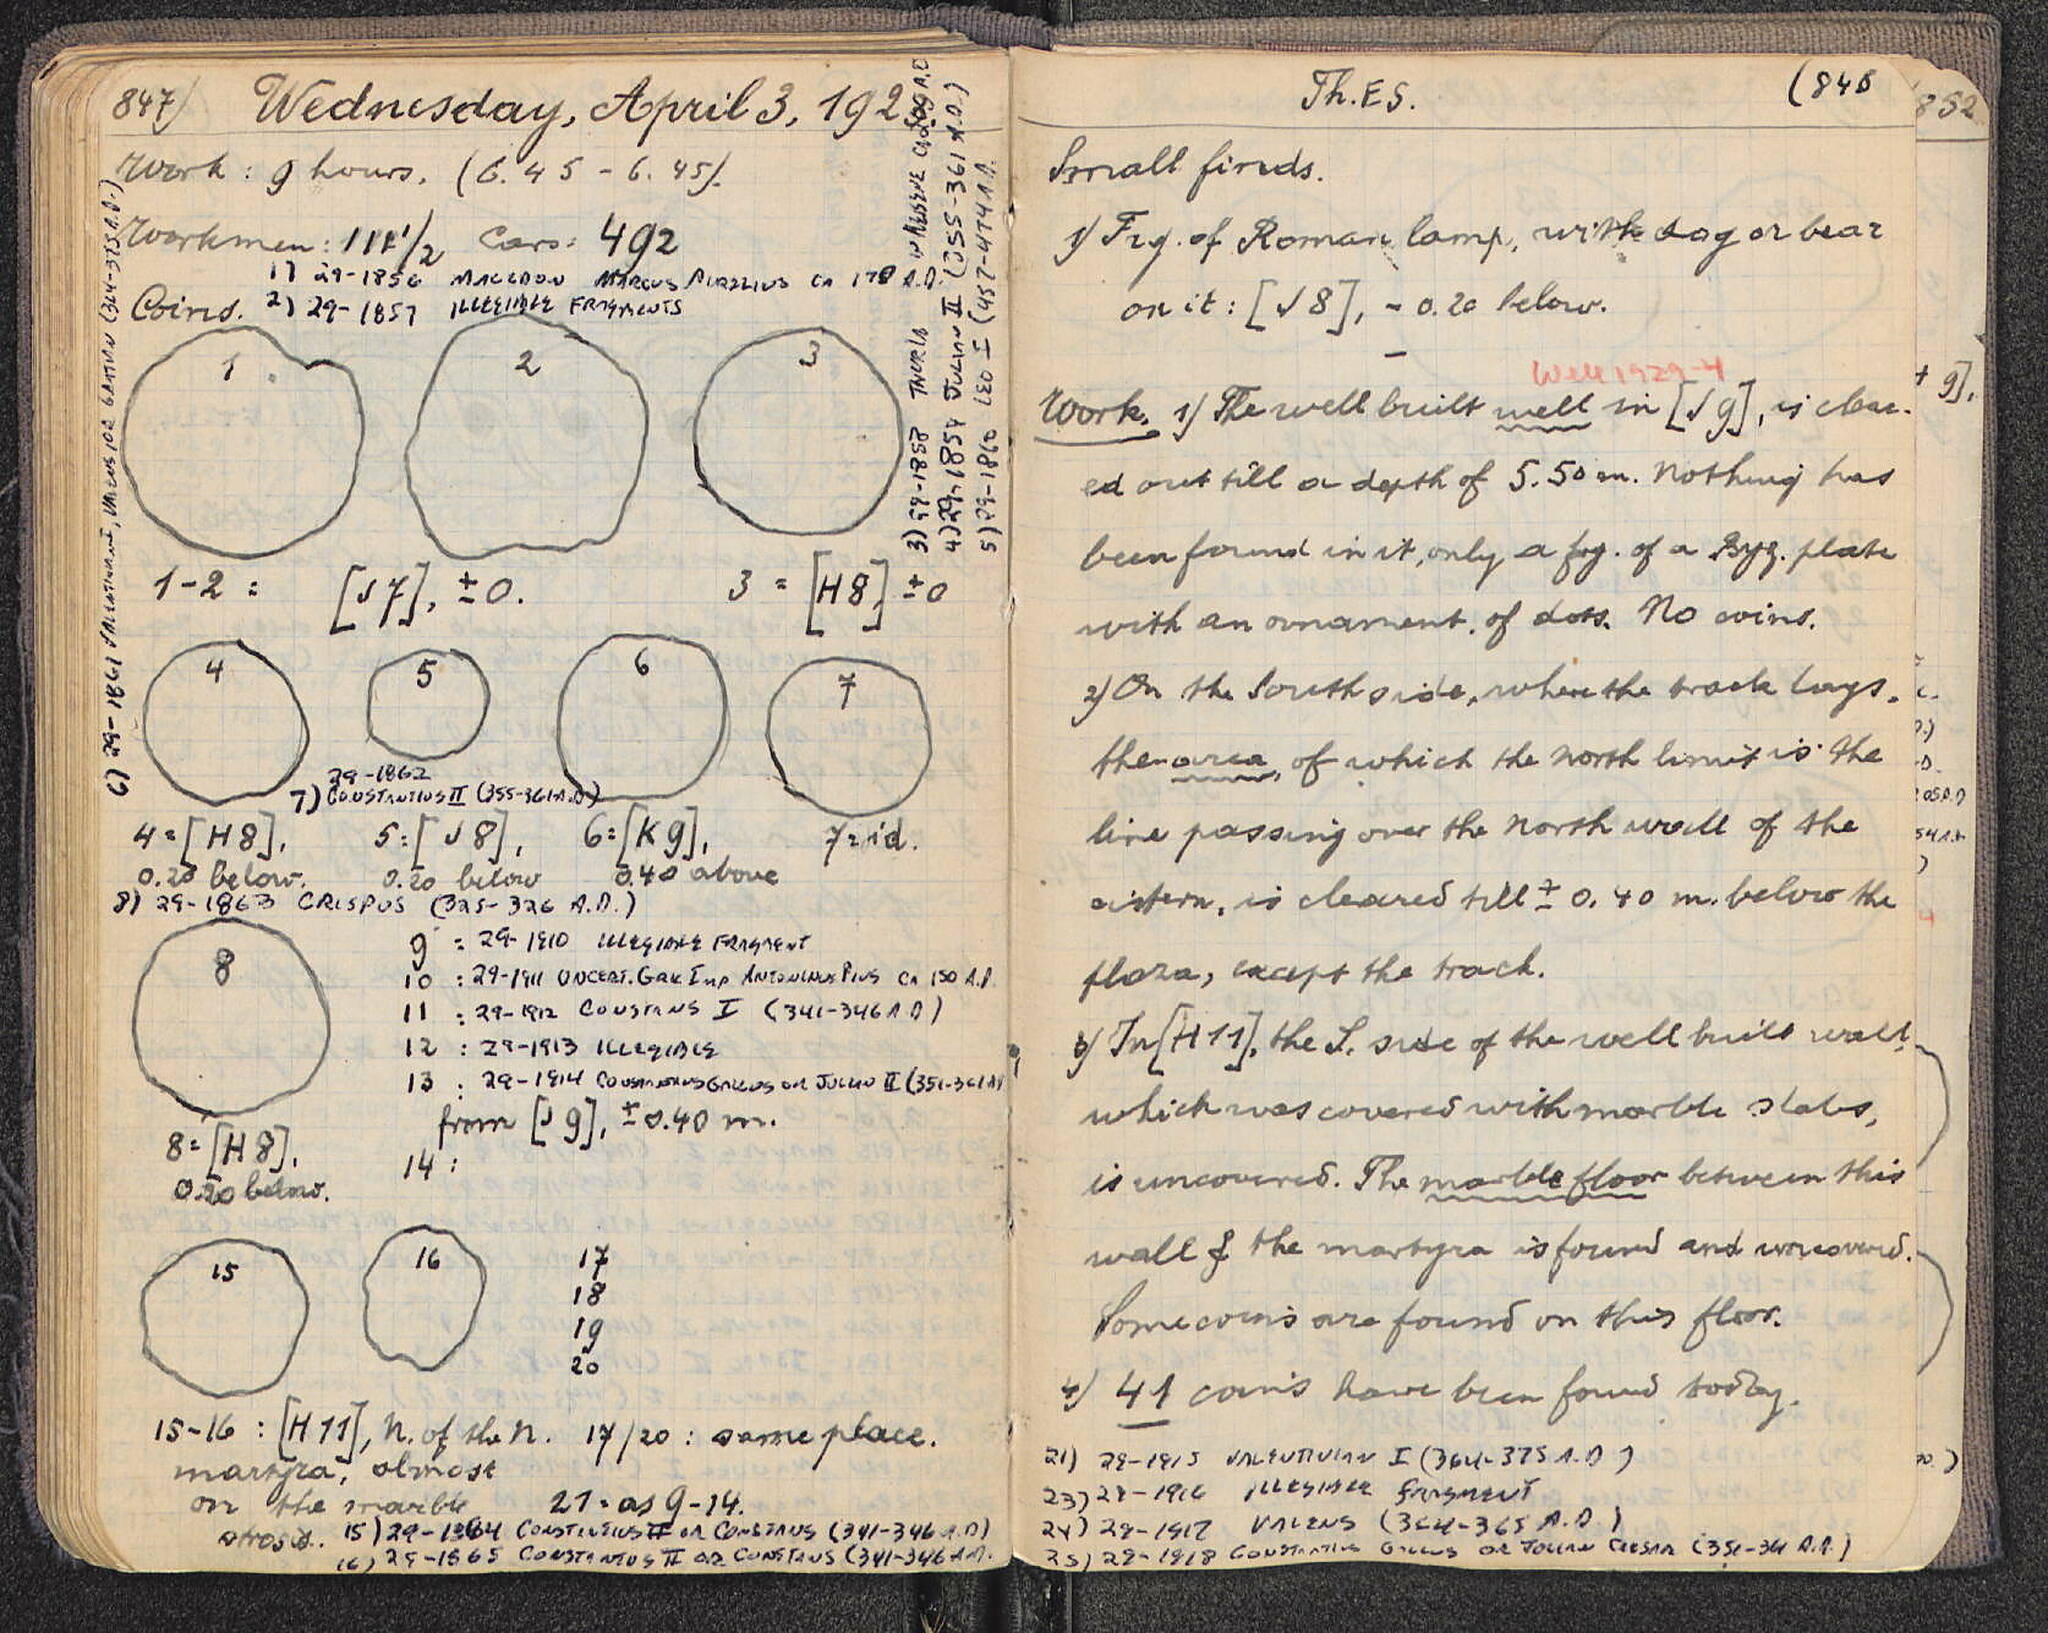 847)
Wednesday, April 3, 192
Work : 9 hours. (6.45 - 6.45).
Workmen: 111 1/2 Cars: 492
1) 29-1856 MACEDON MARCUS AURELIUS CA 170 A.D.
Coins. 2) 29-1857 ILLEGIBLE FRAGMENTS
1
2
3
3) 29-1858 THURIA
4) 29-1859 JULIAN II (355-361 A.D.)
5) 29-1860 LEO I (457-474 A.D.)
6) 29-1861 (364-375 A.D.)
1-2 = [J7], ± 0.
3 = [H8] ± 0
4
5
6
7
29-1862
7) CONSTANTIUS II (355-361 A.D.)
4=[H8], 5:[J8], 6:[K9], 7=id.
0.20 below. 0.20 below 0.40 above
8) 29-1863 CRISPUS (325-326 A.D.)
8
9 : 29-1910 ILLEGIBLE FRAGMENT
10 : 29-1911 UNCERT. GRK IMP ANTONINUS PIUS CA 150 A.D.
11 : 29-1912 CONSTANS I (341-346 A.D)
12 : 29-1913 ILLEGIBLE
13 : 29-1914 CONSTANTIUS GALLUS OR JULIAN II (351-361 A.D
from [J9], ±0.40 m.
8=[H8],
14 :
0.20 below.
15
16
17
18
19
20
15-16 : [H11], N. of the N. 17/20 : same place.
martyra, almost
on the marble 21 = as 9-14.
strosis. 15) 29-1864 CONSTANTIUS II OR CONSTANS (341-346 A.D)
16) 29-1865 CONSTANTIUS II OR CONSTANS (341-346 A.D.
Th.ES.
(848
Small finds.
1) Frg. of Roman lamp, with dog or bear
on it : [J8], - 0.20 below.
Well 1929-4
Work. 1) The well built well in [J9], is clear-
ed out till a depth of 5.50 m. Nothing has
been found in it, only a frg. of a Byz. plate
with an ornament of dots. No coins.
2) On the South side, where the track lays,
the area, of which the north limit is the
line passing over the north wall of the
cistern, is cleared till ± 0.40 m. below the
plaza, except the track.
3) In [H11], the S. side of the well built wall,
which was covered with marble slabs,
is uncovered. The marble floor between this
wall & the martyra is found and uncovered.
Some coins are found on this floor.
4) 41 coins have been found today.
21) 29-1915 VALENTINIAN I (364-375 A.D)
23) 29-1916 ILLEGIBLE FRAGMENT
24) 29-1917 VALENS (364-365 A.D.)
25) 29-1918 CONSTANTIUS GALLUS OR JULIAN CAESAR (351-361 A.D.)
852